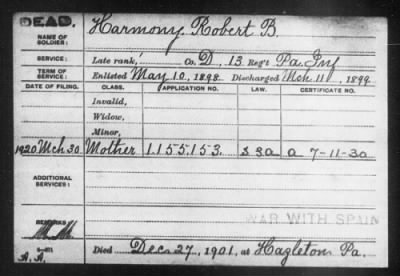 DEAD.
NAME OF SOLDIER: Harmony, Robert B.
SERVICE: Late rank, Co. D, 13 Reg't Pa. Inf
TERM OF SERVICE: Enlisted May 10, 1898. Discharged Mch 11, 1899.
DATE OF FILING. CLASS. APPLICATION NO. LAW. CERTIFICATE NO.
Invalid,
Widow,
Minor,
1920 Mch 30 Mother 1155153. a 7-11-30
ADDITIONAL SERVICES:
WAR WITH SPAIN
REMARKS
Died Dec 27, 1901, at Hazleton Pa.